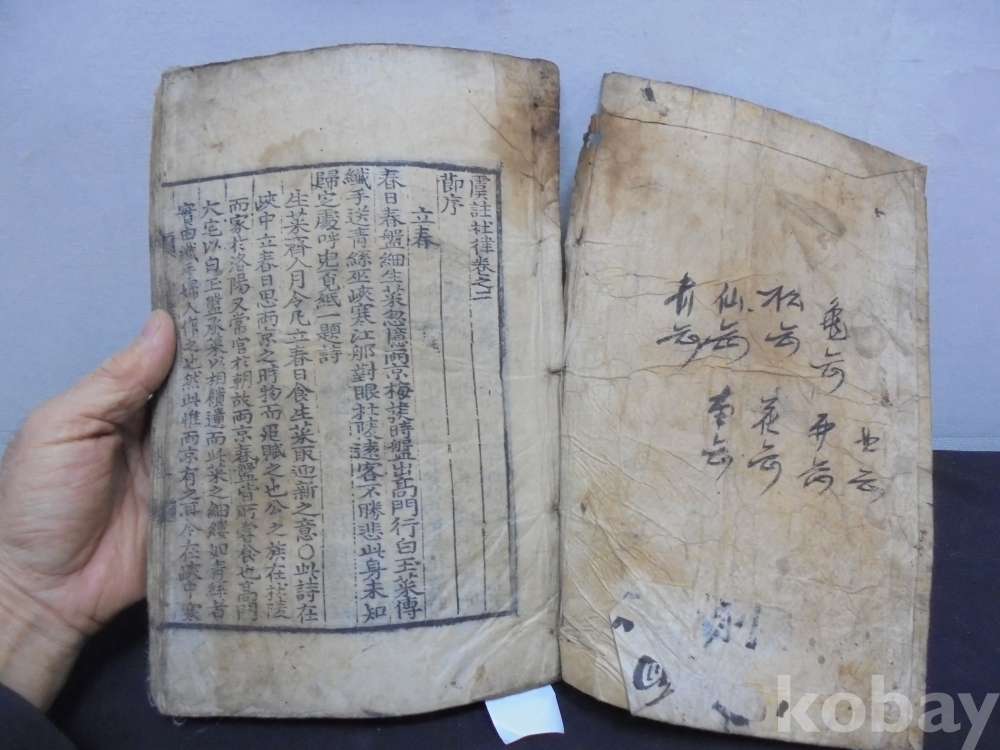 虞註杜律卷之二
節序
立春
春日春盤細生菜忽憶兩京梅發時盤出高門行白玉菜傳
纖手送青絲巫峽寒江那對眼杜陵遠客不勝悲此身未知
歸定處呼兒覓紙一題詩
生菜齊人月令凡立春日食生菜取迎新之意〇此詩在
峽中立春日思兩京之時物而追賦之也公之族在杜陵
而家於洛陽又嘗官於朝故兩京春盤皆所嘗食也高門
大宅以白玉盤承菜以相餽遺而此菜之細縷如青絲者
實由纖手婦人作之也然此惟兩京有之耳今在峽中寒
龜
松
仙
花
四
kobay